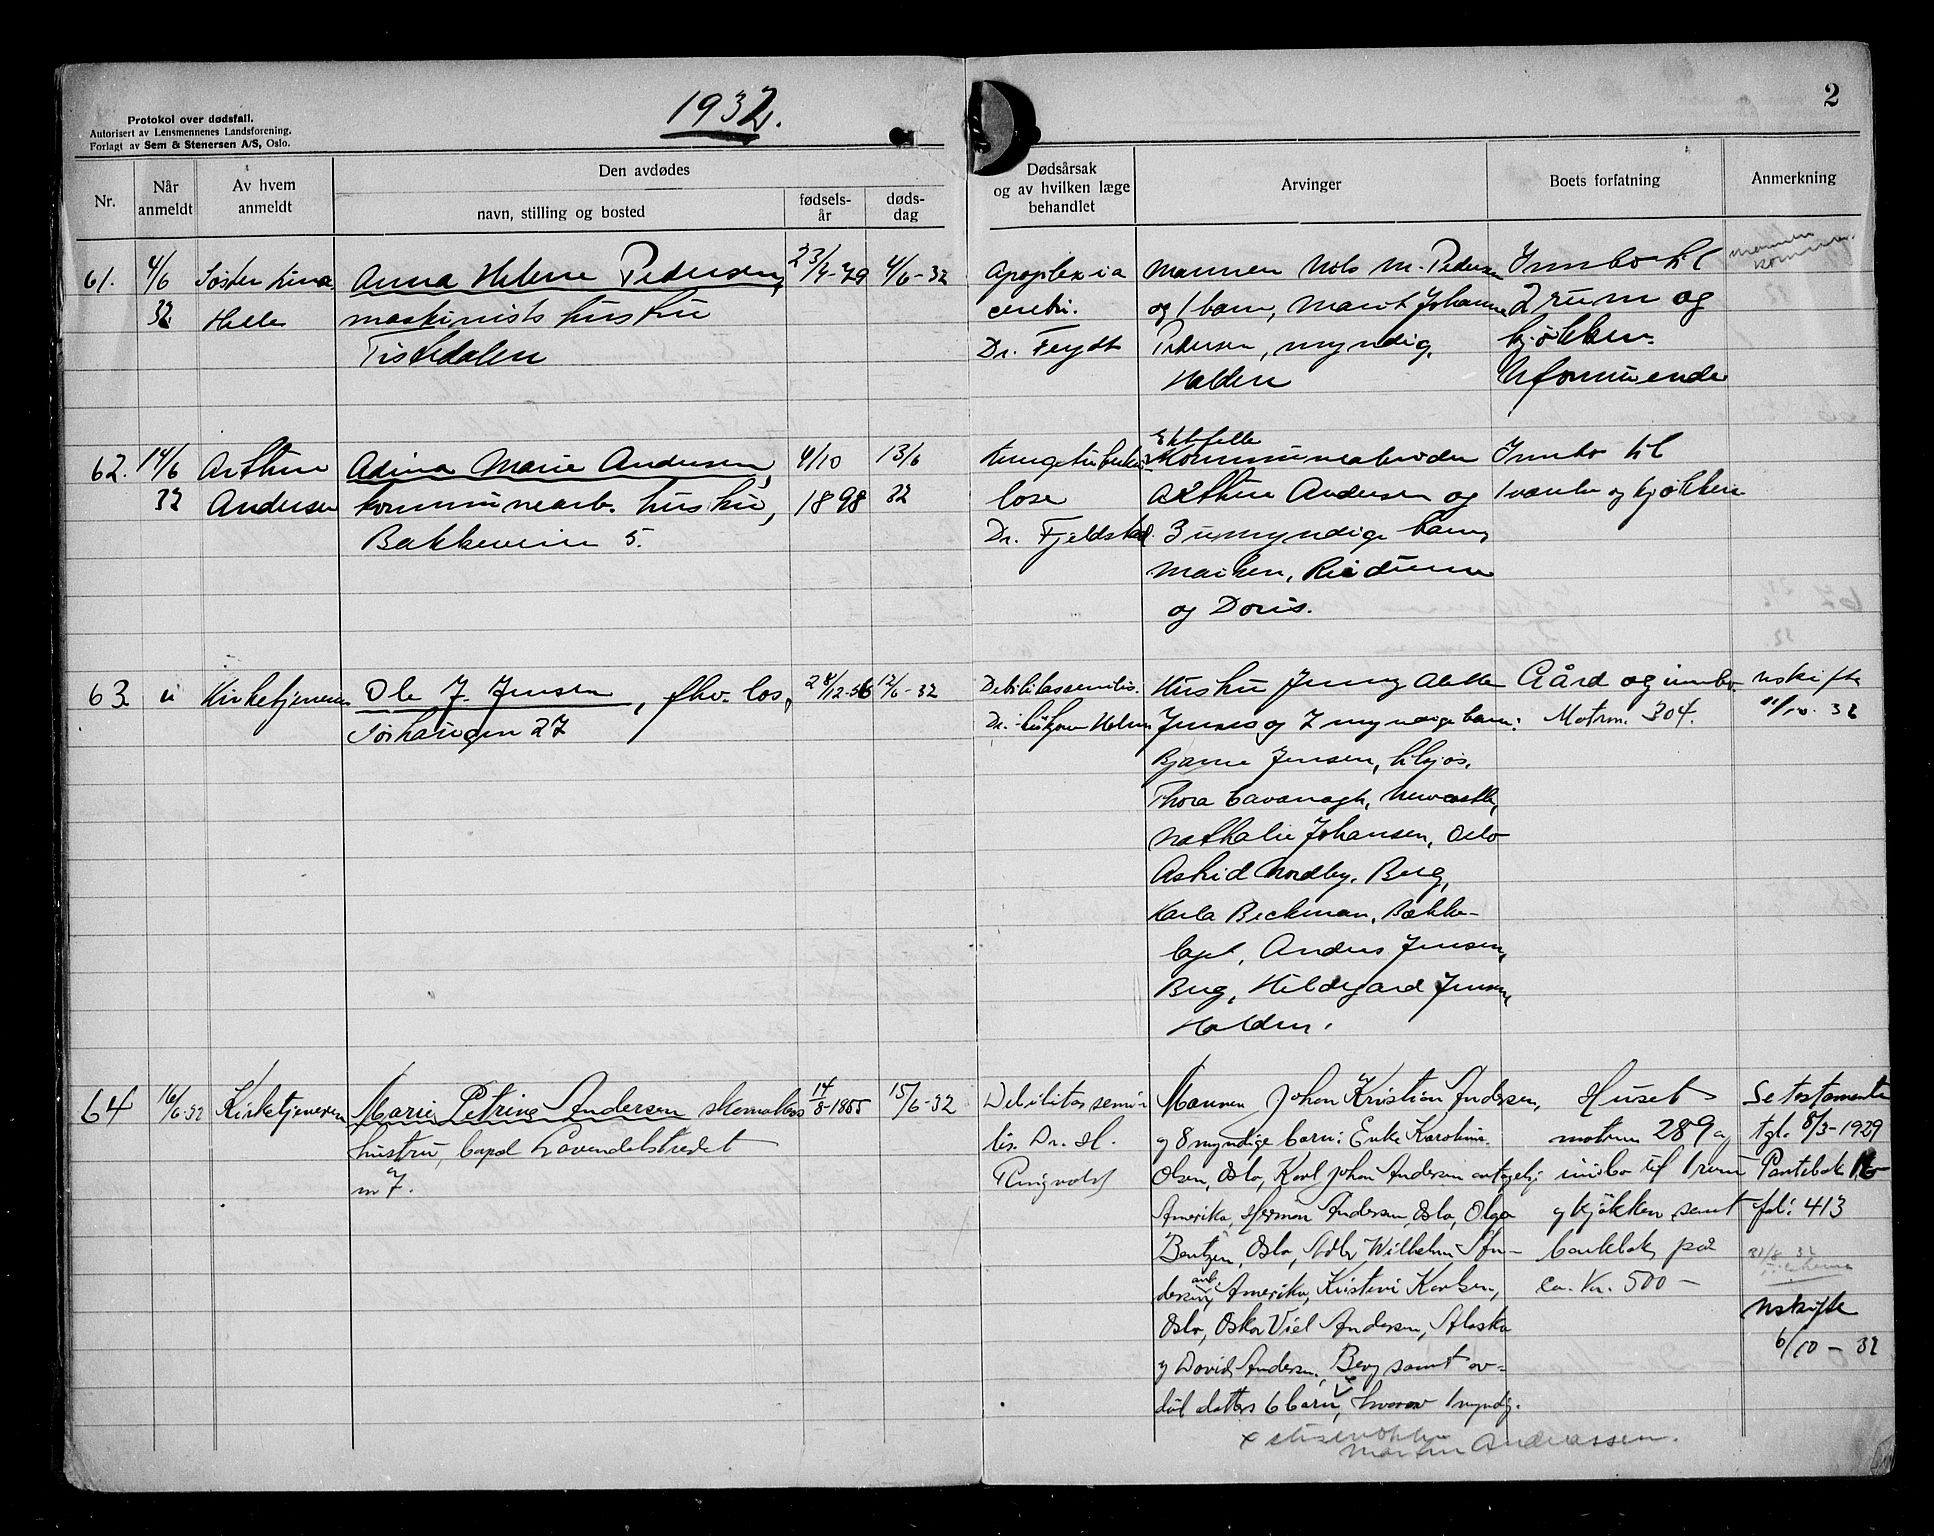 Protokol over dødsfall.
Autorisert av Lensmennenes Landsforening.
Forlagt av Sem & Stenersen A/S, Oslo.
1932.
2
Nr.
Når anmeldt
Av hvem anmeldt
Den avdødes
navn, stilling og bosted
fødsels-år
døds-dag
Dødsårsak
og av hvilken læge
behandlet
Arvinger
Boets forfatning
Anmerkning
61.
4/6
32
Søster Lina
Helle
Anna Helene Pedersen,
maskinists hustru
Tistedalen
23/4-79
4/6-32
Apoplexia
cerebri.
Dr. Feydt
Mannen Nils M. Pedersen
og 1 barn, Marit Johanne
Pedersen, myndig,
Halden
Innbo til
2 rum og
kjøkken.
Uformuende
mannen
kommer.
62.
14/6
32
Arthur
Andersen
Adina Marie Andersen,
kommunearb. hustru,
Bakkeveien 5.
4/10
1898
13/6
32
Lungetuberku-
lose
Dr. Fjeldstad
Ektefelle
Kommunearbeider
Arthur Andersen og
3 umyndige barn,
Maiken, Reidunn
og Doris.
Innbo til
1 værelse og kjøkken
63
"
Kirketjeneren
Ole J. Jensen, fhv. los,
Sørhaugen 27
28/12-56
12/6-32
Debilitas senilis.
Dr. Holm
Hustru Jenny Alette
Jensen og 7 myndige barn:
Bjarne Jensen,
Thora Cavanagh, Newcastle,
Nathalie Johansen, Oslo
Astrid Nordby, Berg,
Karla Beckman, Bække-
laget, Anders Jensen,
Berg, Hildegard Jensen,
Halden.
Gård og innbo
Matrnr. 304.
Uskifte
11/10. 32
64
16/6-32
Kirketjeneren
Marie Petrine Andersen skomakers
hustru, Lavendelstredet
nr 7.
14/8-1855
15/6-32
Debilitas seni-
lis. Dr. H.
Ringvold
Mannen, Johan Kristian Andersen,
og 8 myndige barn: Enke Karoline
Olsen, Oslo, Karl Johan Andersen antagelig
Amerika, Herman Andersen, Oslo, Olga
Bentzen, Oslo, Adler Wilhelm An-
dersen, Amerika, Kristine Karlsen,
Oslo, Oskar Viel Andersen, Alaska
og David Andersen, Berg samt av-
død datters 6 barn, hvorav 1 myndig.
Martin Andreassen.
Huset
matrnr 289 og
innbo til 1 rum
og kjøkken, samt
bankbok på
ca. Kr. 500-
Se testamente
tgl. 8/3-1929
Pantebok 16
fol: 413
31/8 32
Uskifte
6/10-32